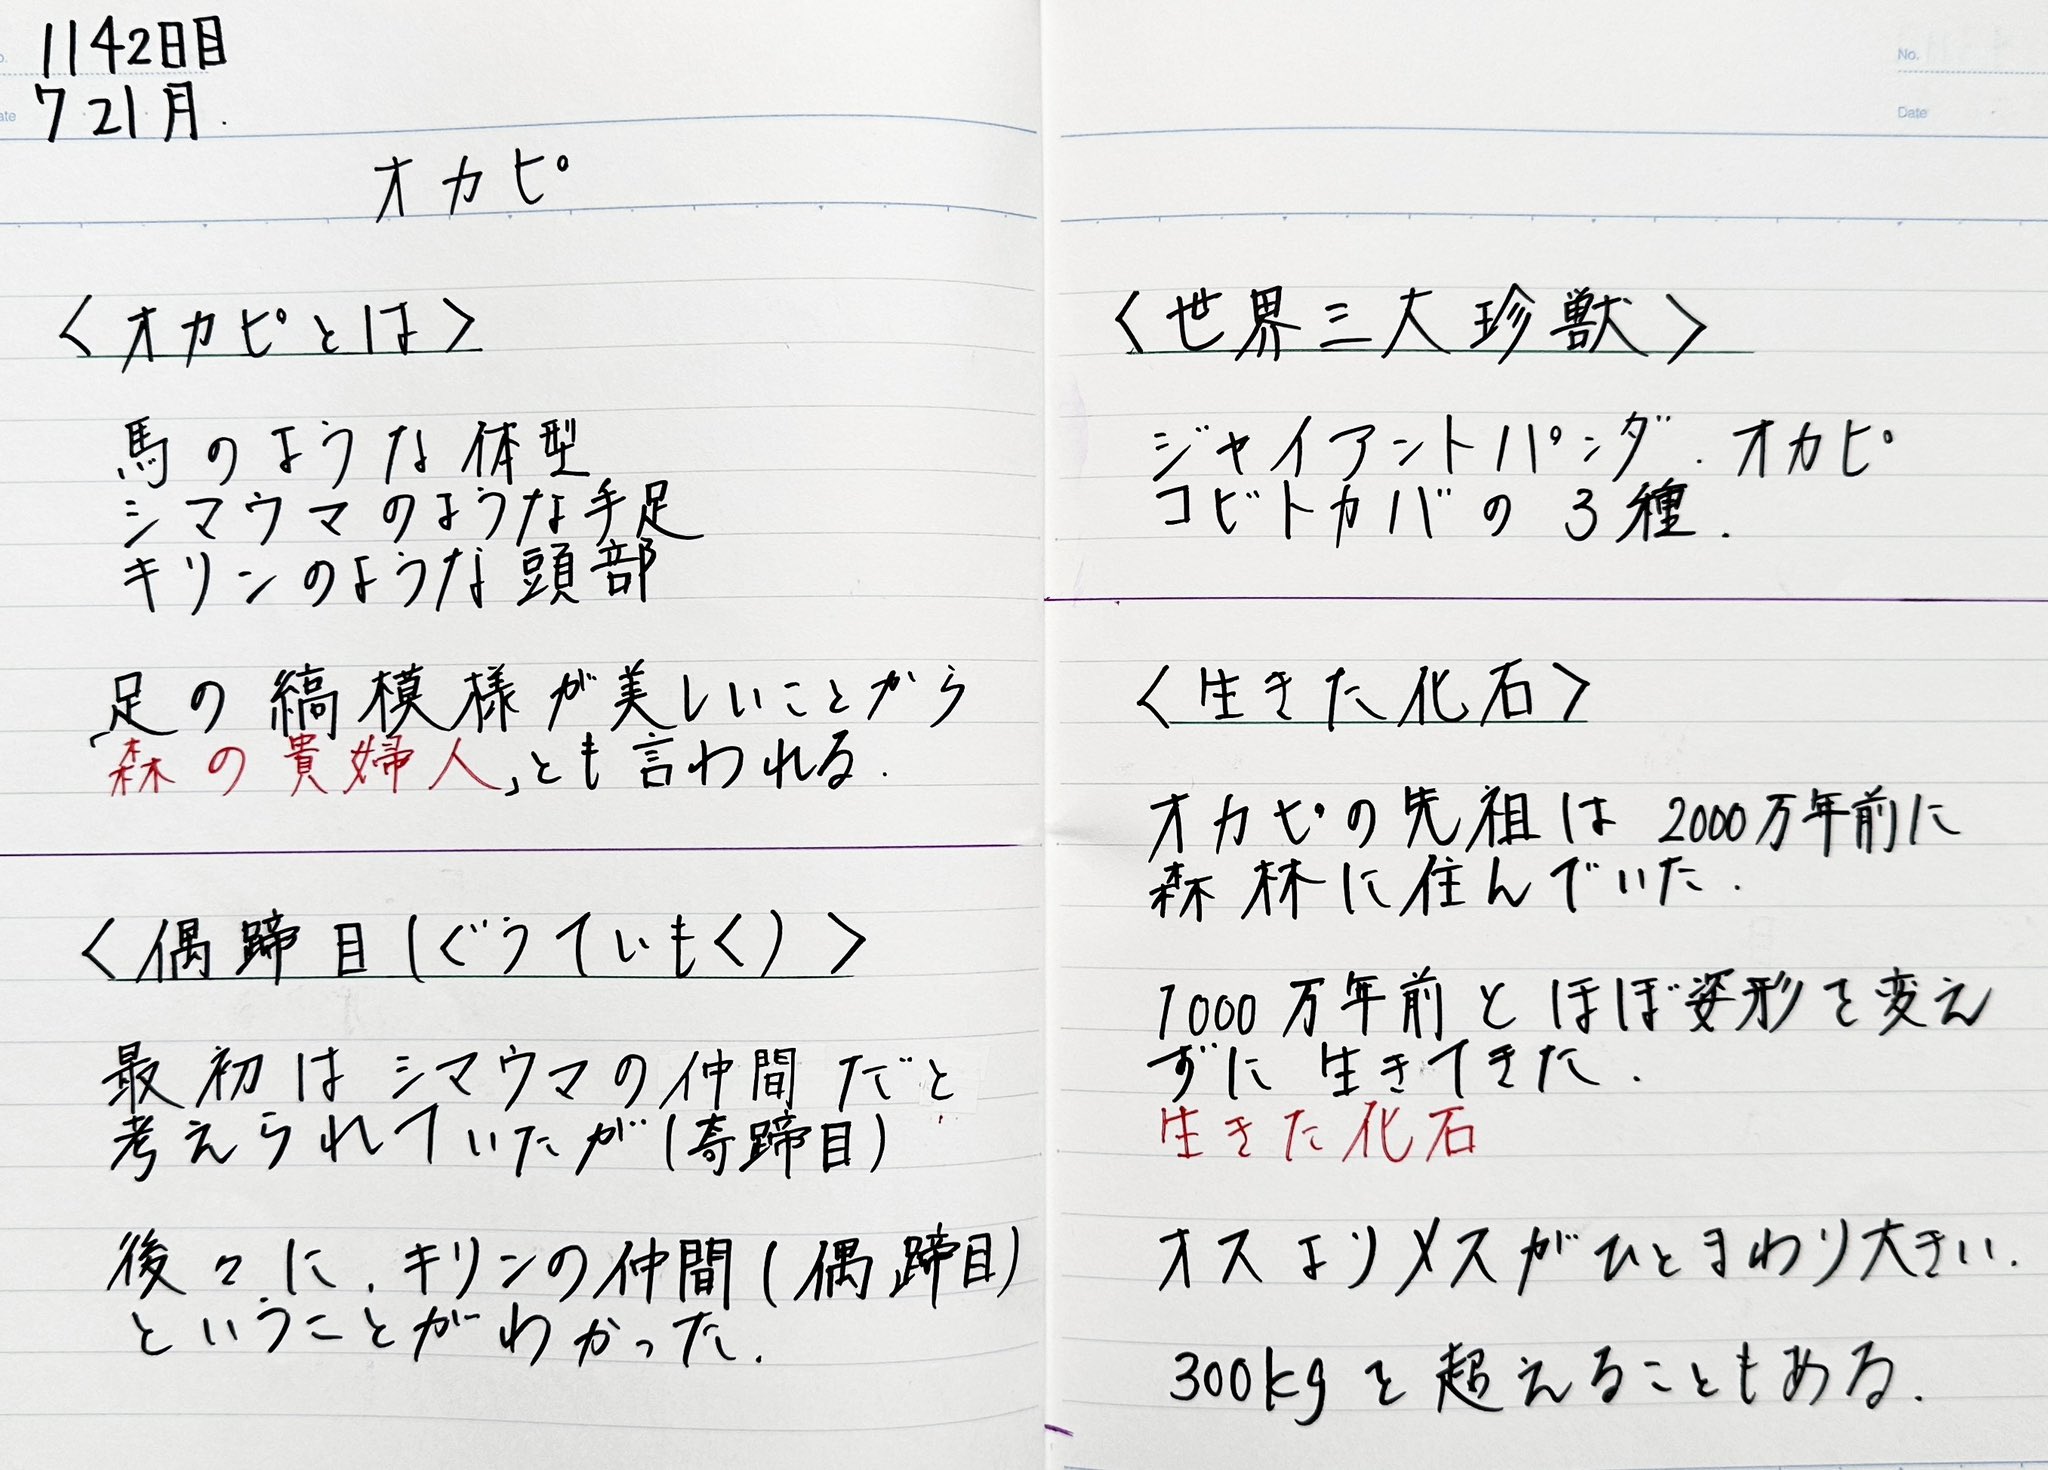 1142日目
7 21月.
オカピ
<オカピとは>
馬のような体型
シマウマのような手足
キリンのような頭部
足の縞模様が美しいことから
「森の貴婦人」とも言われる.
<偶蹄目(ぐうていもく)>
最初はシマウマの仲間だと
考えられていたが(奇蹄目)
後々に、キリンの仲間(偶蹄目)
ということがわかった.
No.
Date
<世界三大珍獣>
ジャイアントパンダ、オカピ
コビトカバの3種.
<生きた化石>
オカピの先祖は2000万年前に
森林に住んでいた.
1000万年前とほぼ姿形を変え
ずに生きてきた.
生きた化石
オスよりメスがひとまわり大きい.
300kgを超えることもある.